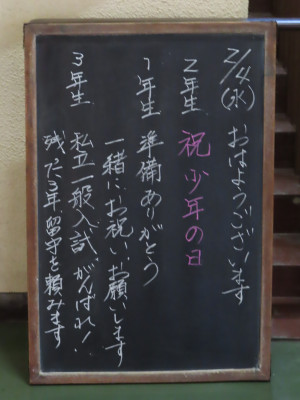 2/4(水) おはようございます
2年生 祝 少年の日
1年生 準備ありがとう
一緒に、お祝い、お願いします
3年生 私立一般入試、がんばれ!
残った3年 留守を頼みます